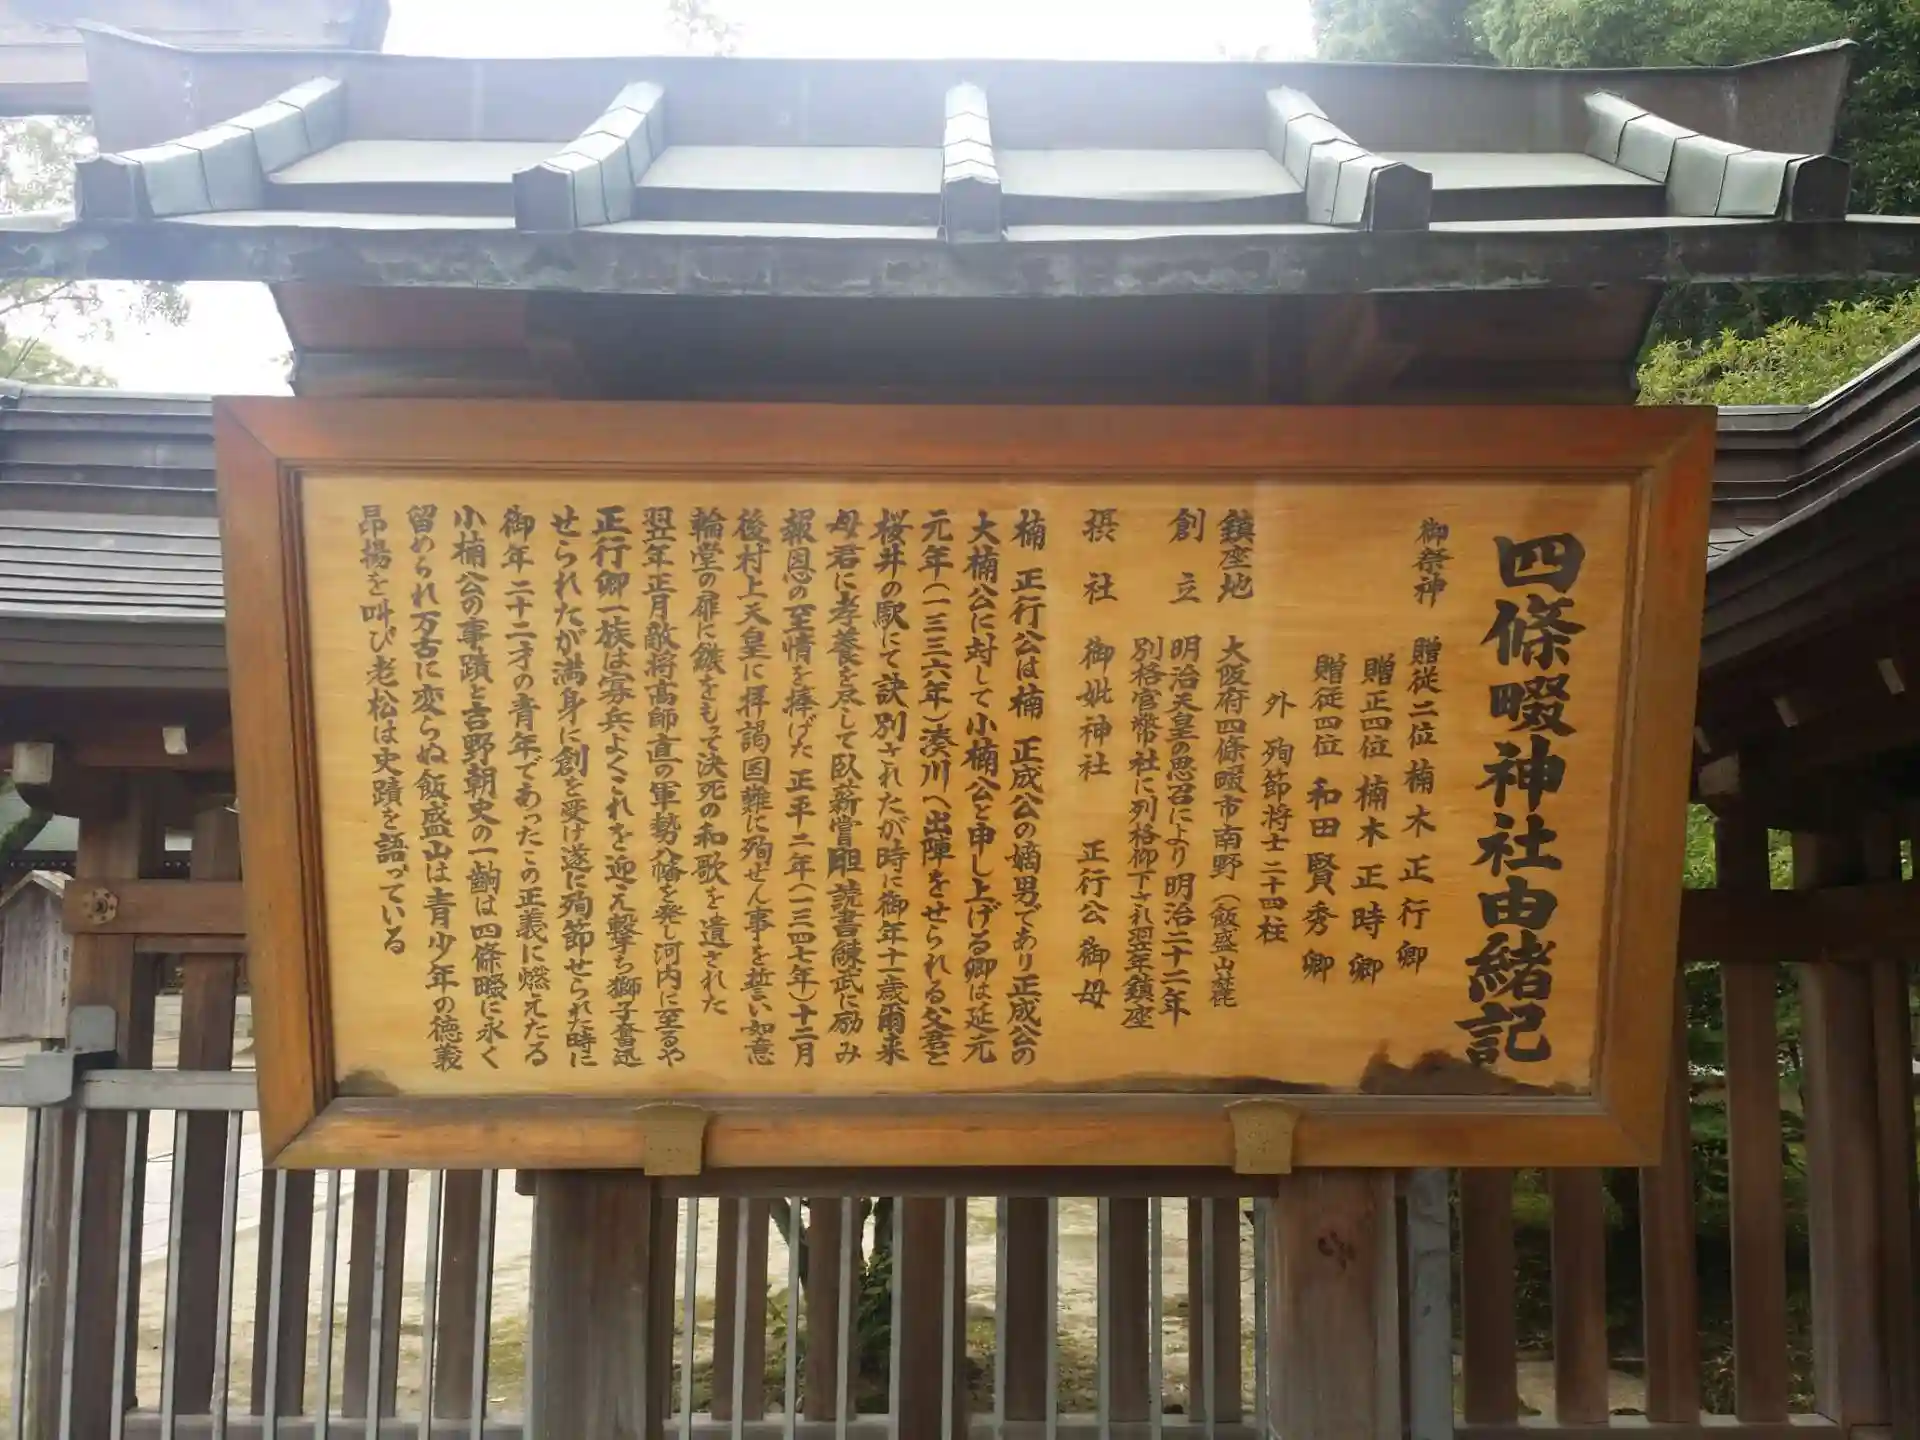 四條畷神社由緒記
御祭神 贈従二位 楠木正行卿
贈正四位 楠木正時卿
贈従四位 和田賢秀卿
外 殉節将士二十四柱
鎮座地 大阪府四條畷市南野(飯盛山麓)
創立 明治天皇の思召により明治二十二年
別格官幣社に列格御下され翌年鎮座
摂社 御妣神社 正行公御母
楠 正行公は楠 正成公の嫡男であり正成公の
大楠公に対して小楠公と申し上げる卿は延元
元年(一三三六年)湊川へ出陣をせられる父君と
桜井の駅にて訣別されたが時に御年十一歳爾来
母君に孝養を尽して臥薪嘗胆読書練武に励み
報恩の至情を捧げた 正平二年(一三四七年)十二月
後村上天皇に拝謁困難に殉せん事を誓い如意
輪堂の扉に鏃をもって決死の和歌を遺された
翌年正月敵将高師直の軍勢八幡を発し河内に至るや
正行卿一族は寡兵よくこれを迎え撃ち獅子奮迅
せられたが満身に創を受け遂に殉節せられた時に
御年二十二才の青年であったこの正義に燃えたる
小楠公の事蹟と吉野朝史の一齣は四條畷に永く
留められ万古に変らぬ飯盛山は青少年の徳義
昂揚を叫び老松は史蹟を語っている